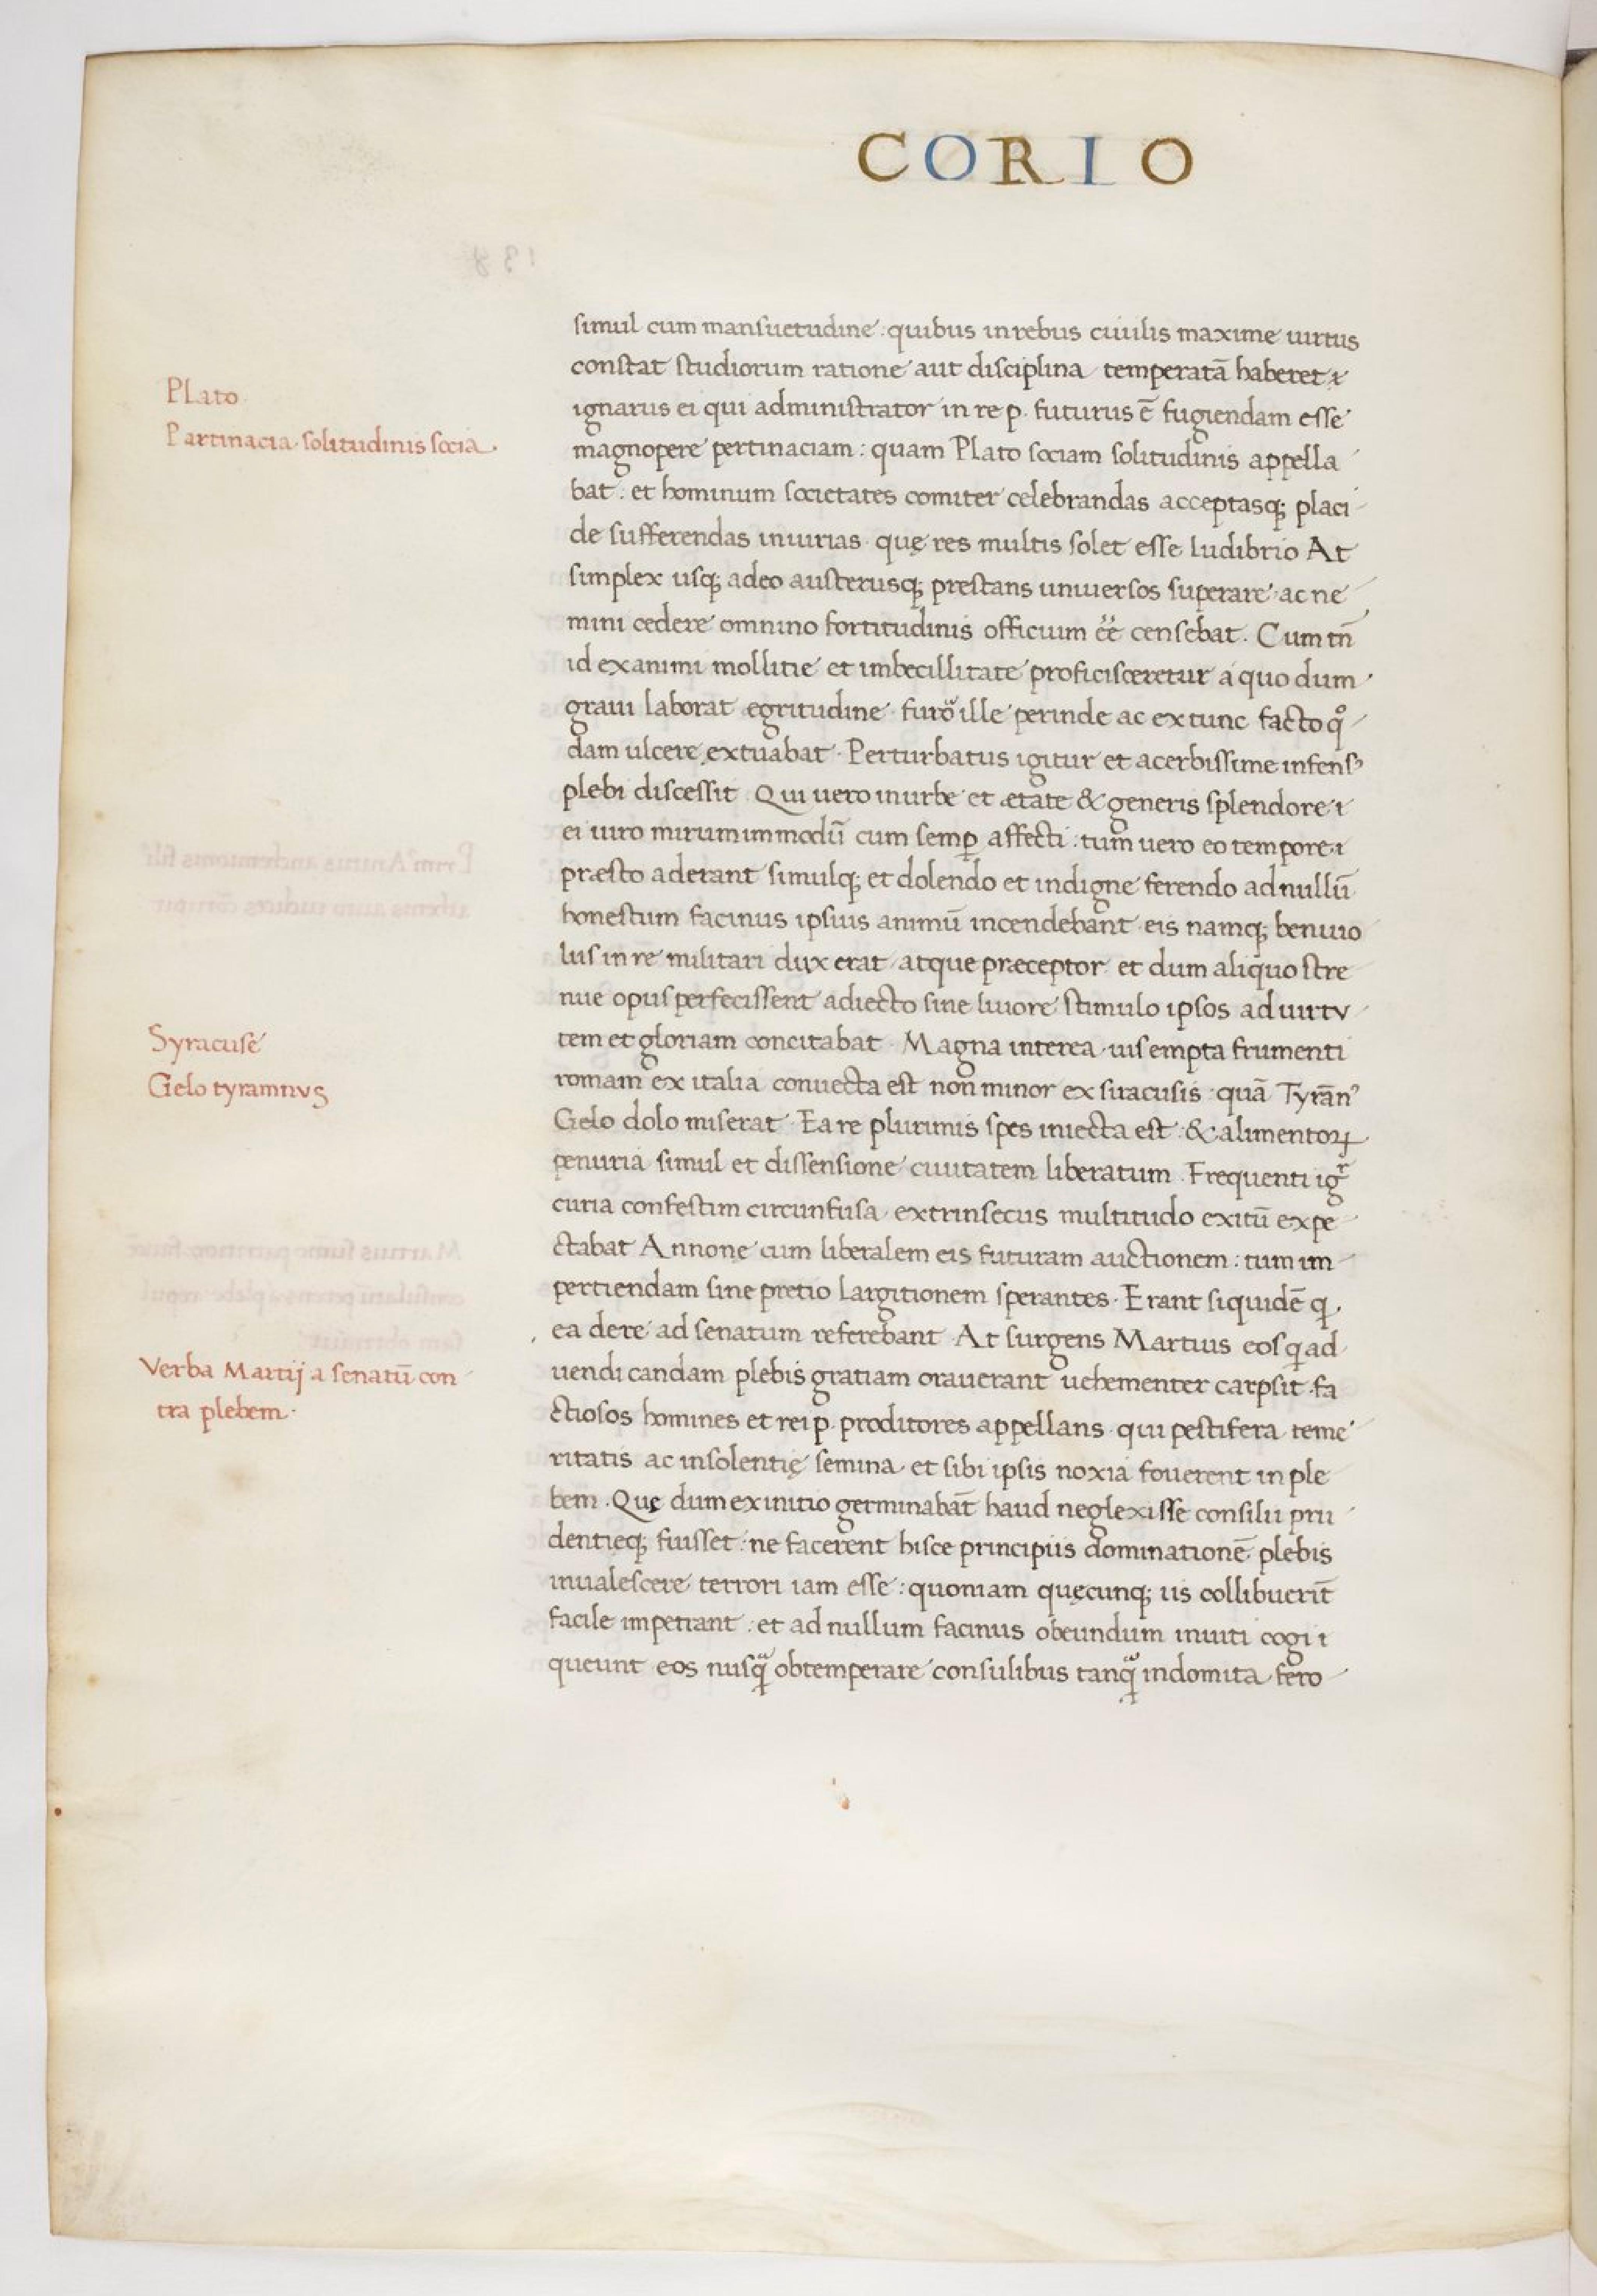 CORIO
simul cum mansuetudine: quibus in rebus ciuilis maxime uirtus
constat studiorum ratione aut disciplina temperatā haberet
Plato
ignarus ei qui administrator in re p. futurus ē fugiendam esse
Partinacia solitudinis socia.
magnopere pertinaciam: quam Plato sociam solitudinis appella
bat: et hominum societates comiter celebrandas acceptasq; placi
de sufferendas iniurias. quę res multis solet esse ludibrio At
simplex usq; adeo austerusq; prestans uniuersos superare ac ne
mini cedere omnino fortitudinis officium ēē censebat. Cum tn̄
id ex animi mollitie et imbecillitate proficisceretur a quo dum
graui laborat egritudine furor ille perinde ac ex tunc facto qͦ
dam ulcere extuabat. Perturbatus igitur et acerbissime infensꝰ
plebi discessit. Qui uero in urbe et ætate & generis splendore
ei uiro mirum immodū cum semꝑ affecti: tum uero eo tempore
præsto aderant simulq; et dolendo et indigne ferendo ad nullū
honestum facinus ipsius animū incendebant eis namq; beniuo
lus in re militari dux erat atque præceptor et dum aliquo stre
nue opus perfecissent adiecto sine liuore stimulo ipsos ad uirtv
Syracuse
tem et gloriam concitabat. Magna interea uis empta frumenti
Gelo tyramnvs
romam ex italia conuecta est non minor ex siracusis quā Tyrānꝰ
Gelo dolo miserat. Ea re plurimis spes iniecta est: & alimentoꝝ
penuria simul et dissensione ciuitatem liberatum. Frequenti igr̄
curia confestim circunfusa extrinsecus multitudo exitū expe
ctabat Annone cum liberalem eis futuram auctionem: tum im
pertiendam sine pretio largitionem sperantes. Erant siquidē q
ea dere ad senatum referebant At surgens Martius eosq ad
Verba Martij a senatū con
uendicandam plebis gratiam orauerant uehementer carpsit. fa
tra plebem.
ctiosos homines et rei p. proditores appellans. qui pestifera teme
ritatis ac insolentię semina et sibi ipsis noxia fouerent in ple
bem. Quę dum ex initio germinabāt haud neglexisse consilii pru
dentieq; fuisset: ne facerent hisce principiis dominationē plebis
inualescere terrori iam esse: quoniam quęcunq; iis collibuerīt
facile impetrant: et ad nullum facinus obeundum inuiti cogi
queunt eos nusqᷓ obtemperare consulibus tanqᷓ indomita fero